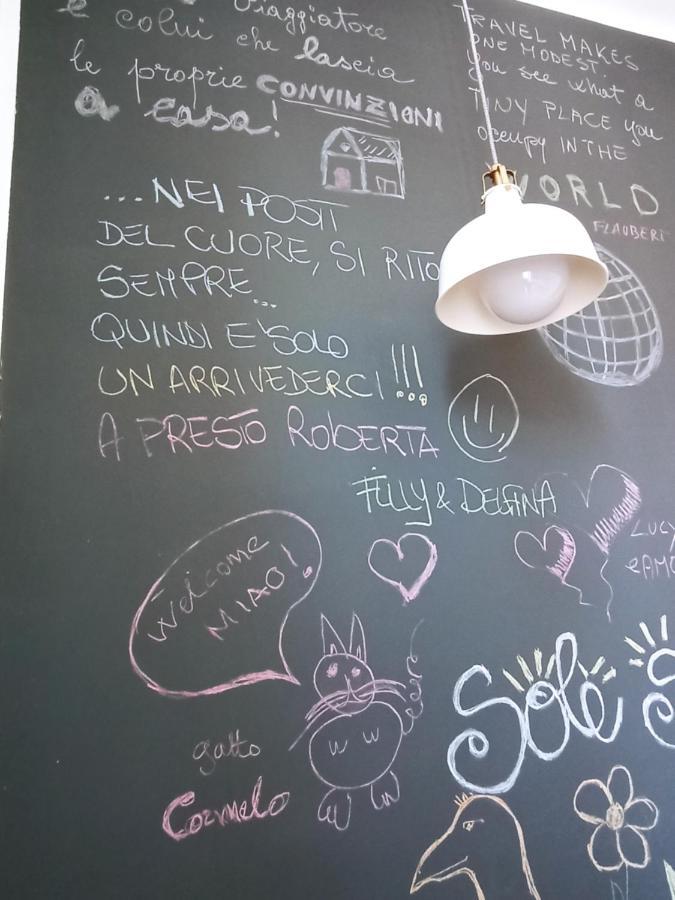 è colui che lascia
viaggiatore
le proprie CONVINZIONI
a casa!
TRAVEL MAKES
ONE MODEST.
you see what a
TINY PLACE you
occupy IN THE
WORLD
FLAUBERT
...NEI POSTI
DEL CUORE, SI RITO
SEMPRE...
QUINDI E' SOLO
UN ARRIVEDERCI!!!
A PRESTO ROBERTA
FILLY & DELFINA
LUCY
Welcome
MIAO!
gatto
Carmelo
Sole
S